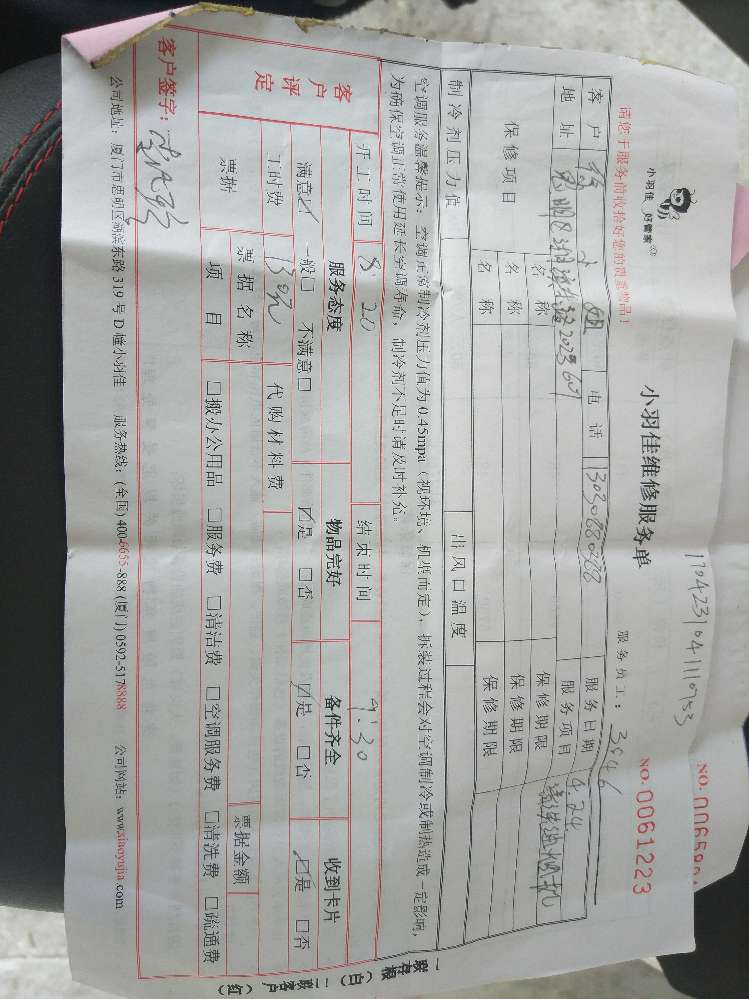 11042310411110953
NO.
小羽佳 好管家
小羽佳维修服务单
NO. 0061223
请您于服务前收拾好您的贵重物品!
服务员工: 3546
客户 小姐 电话 13030880988 服务日期 4.24
地址 思明区湖滨 2023 601 服务项目 清洗油烟机
保修项目 名称 保修期限
名称 保修期限
名称 保修期限
制冷剂压力值 出风口温度
空调服务温馨提示: 空调正常制冷剂压力值为0.45mpa (视环境、机型而定), 拆装过程会对空调制冷或制热造成一定影响,
为确保空调正常使用延长空调寿命, 制冷剂不足时请及时补充。
开工时间 8:20 结束时间 9:30
客户评定 服务态度 物品完好 备件齐全 收到卡片
满意☑ 一般☐ 不满意☐ ☑是 ☐否 ☑是 ☐否 ☑是 ☐否
工时费 130元 代购材料费
票据 票据名称 票据金额
项目 ☐搬办公用品 ☐服务费 ☐清洁费 ☐空调服务费 ☐清洗费 ☐疏通费
客户签字:
公司地址: 厦门市思明区湖滨东路319号D幢小羽佳 服务热线: (全国) 400-6655-888 (厦门) 0592-5178888 公司网站: www.xiaoyujia.com
一联存根 (白) 二联客户 (红)